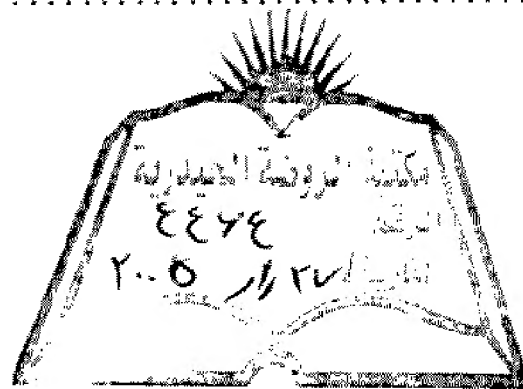 مكتبة الروضة الحيدرية
الرقم
٤٤٧٤
التاريخ ٢٧ / / ٢٠٠٥